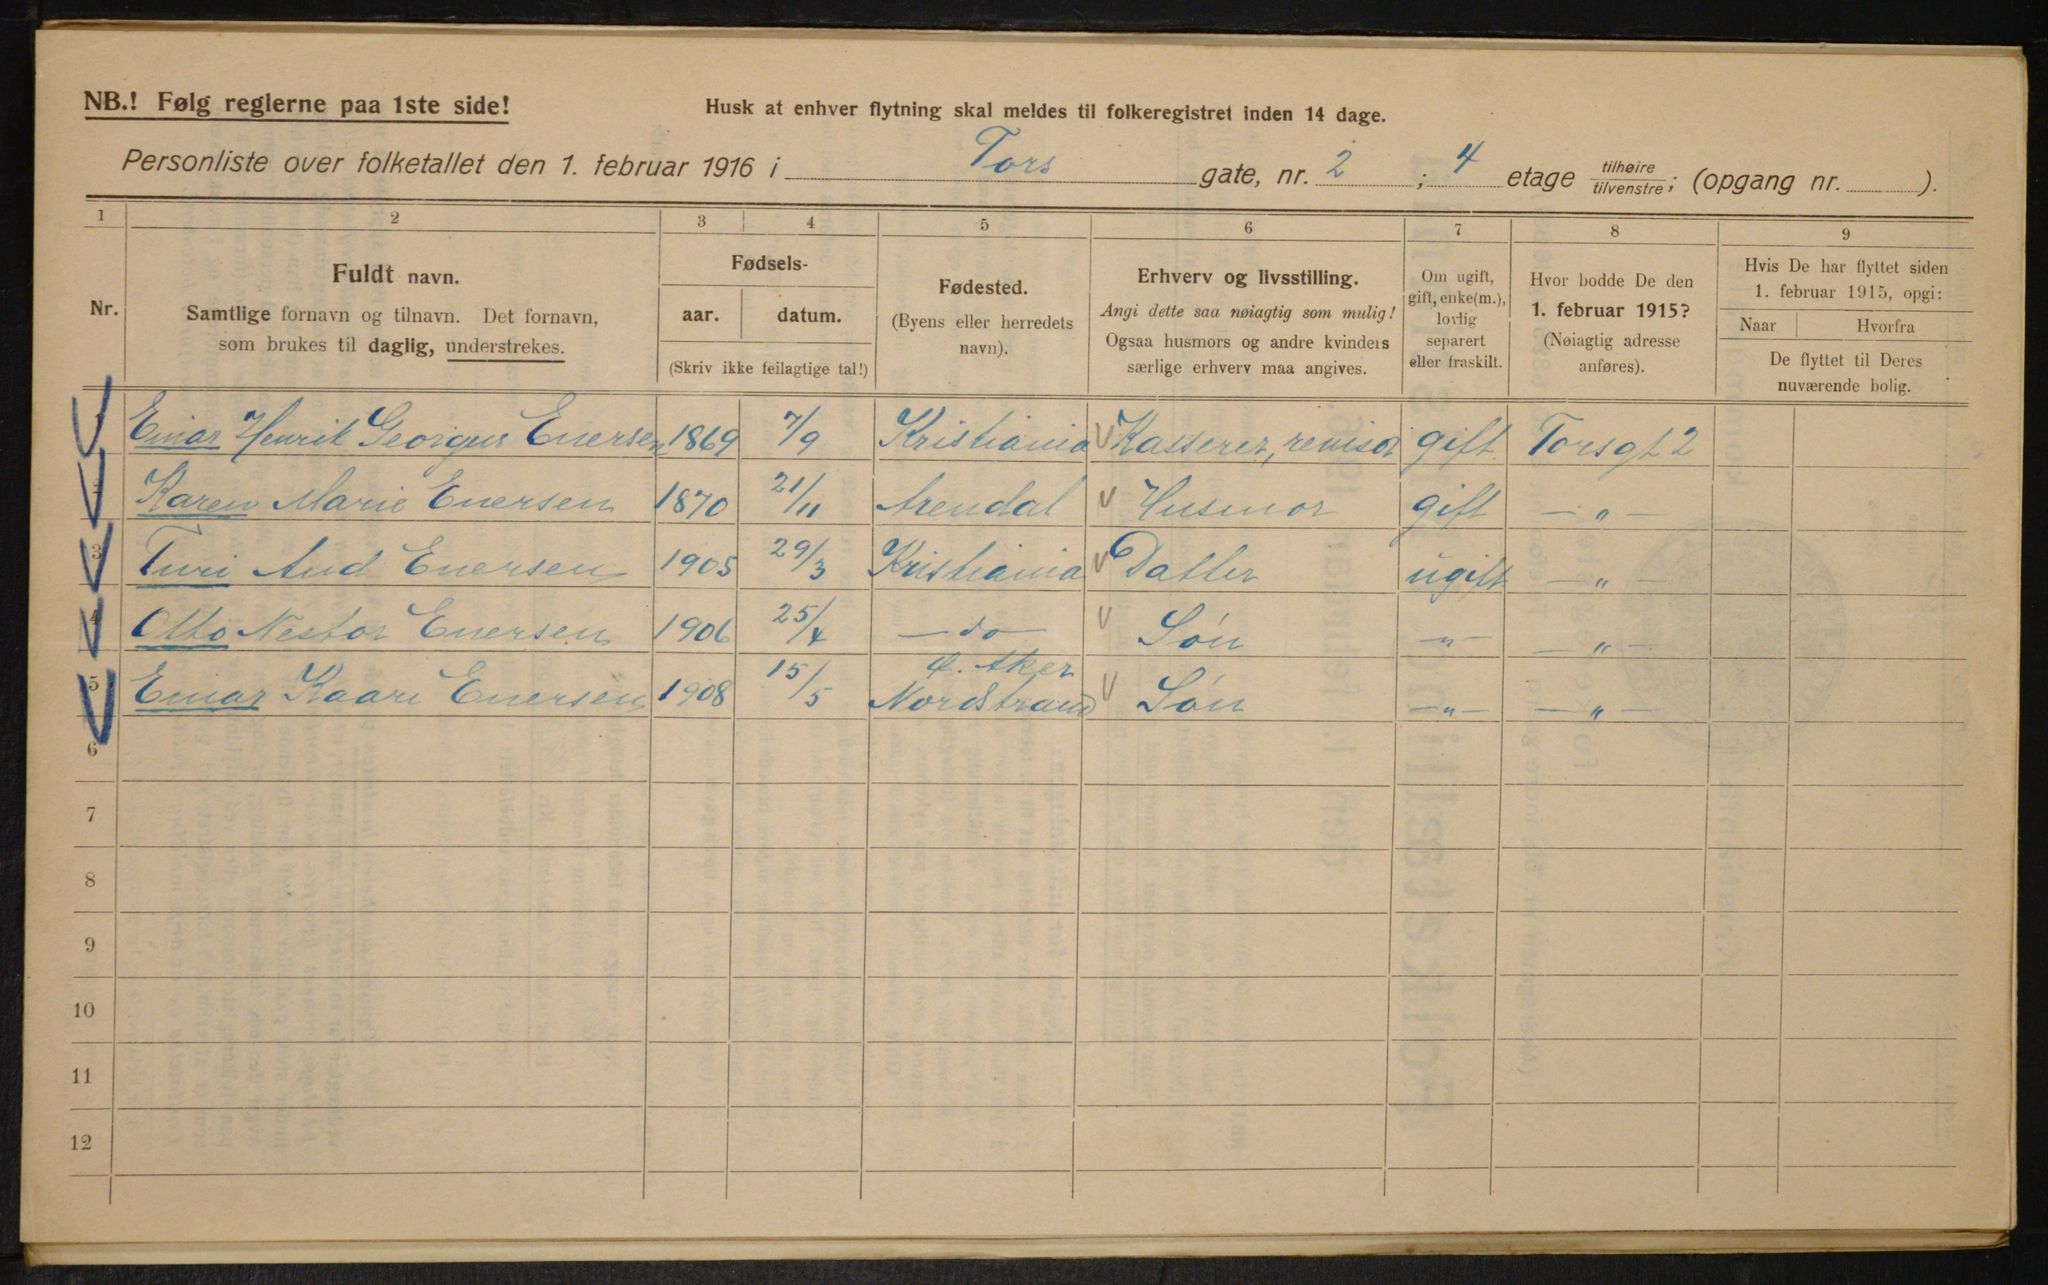 NB.! Følg reglerne paa 1ste side!
Husk at enhver flytning skal meldes til folkeregistret inden 14 dage.
Personliste over folketallet den 1. februar 1916 i Tors gate, nr. 2 ; 4 etage tilhøire/tilvenstre; (opgang nr. ).
1 2 3 4 5 6 7 8 9
Nr.
Fuldt navn.
Samtlige fornavn og tilnavn. Det fornavn,
som brukes til daglig, understrekes.
Fødsels-
aar. datum.
(Skriv ikke feilagtige tal!)
Fødested.
(Byens eller herredets
navn).
Erhverv og livsstilling.
Angi dette saa nøiagtig som mulig!
Ogsaa husmors og andre kvinders
særlige erhverv maa angives.
Om ugift,
gift, enke(m.),
lovlig
separert
eller fraskilt.
Hvor bodde De den
1. februar 1915?
(Nøiagtig adresse
anføres).
Hvis De har flyttet siden
1. februar 1915, opgi:
Naar Hvorfra
De flyttet til Deres
nuværende bolig.
Einar Henrik Georgus Enersen 1869 7/9 Kristiania Kasserer, revisor gift Torsgt 2
Karen Marie Enersen 1870 21/11 Arendal Husmor gift — „ —
3 Turi Aud Enersen 1905 29/3 Kristiania Datter ugift — „ —
4 Otto Nestor Enersen 1906 25/4 — do — Søn — „ — — „ —
5 Einar Kaare Enersen 1908 15/5 Aker Nordstrand Søn — „ — — „ —
6
7
8
9
10
11
12